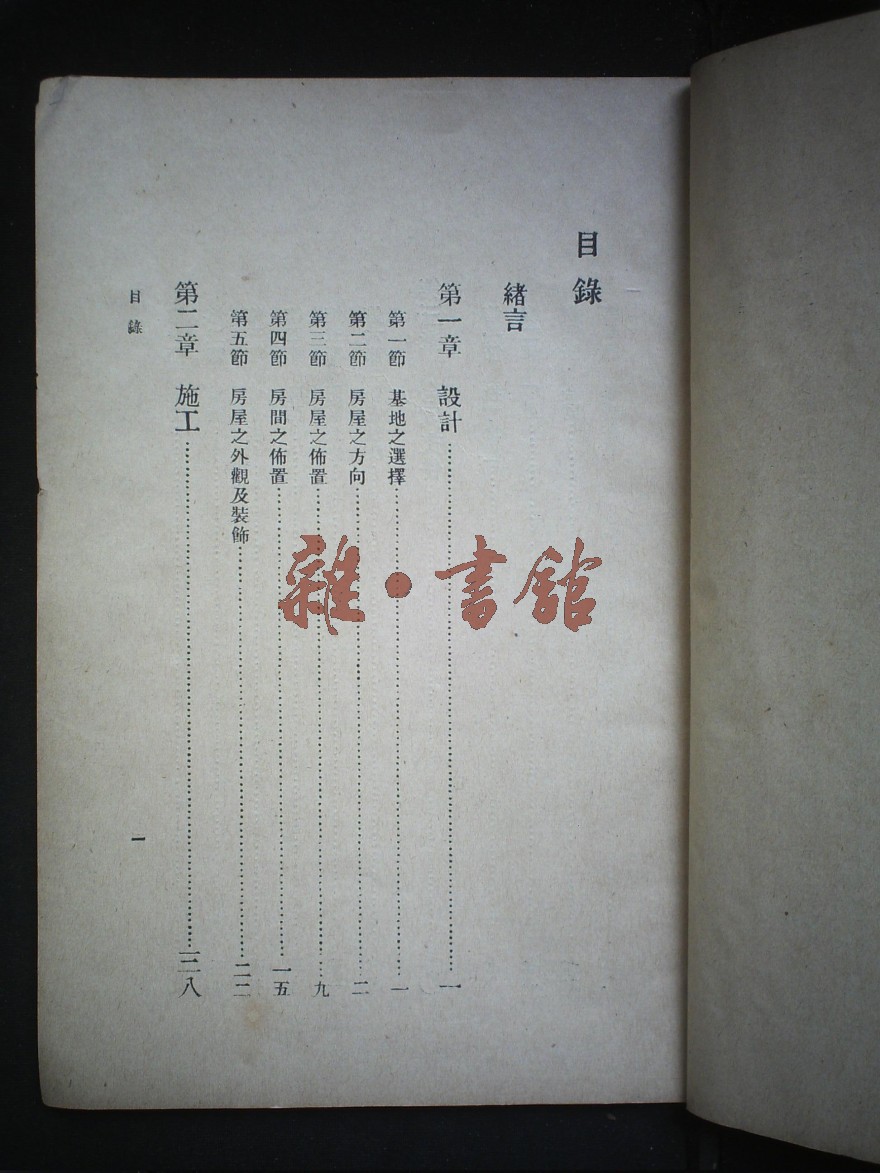 目錄
緒言
第一章 設計……一
第一節 基地之選擇……一
第二節 房屋之方向……二
第三節 房屋之佈置……九
第四節 房間之佈置……一五
第五節 房屋之外觀及裝飾……二二
第二章 施工……三八
目錄
一
雜·書館